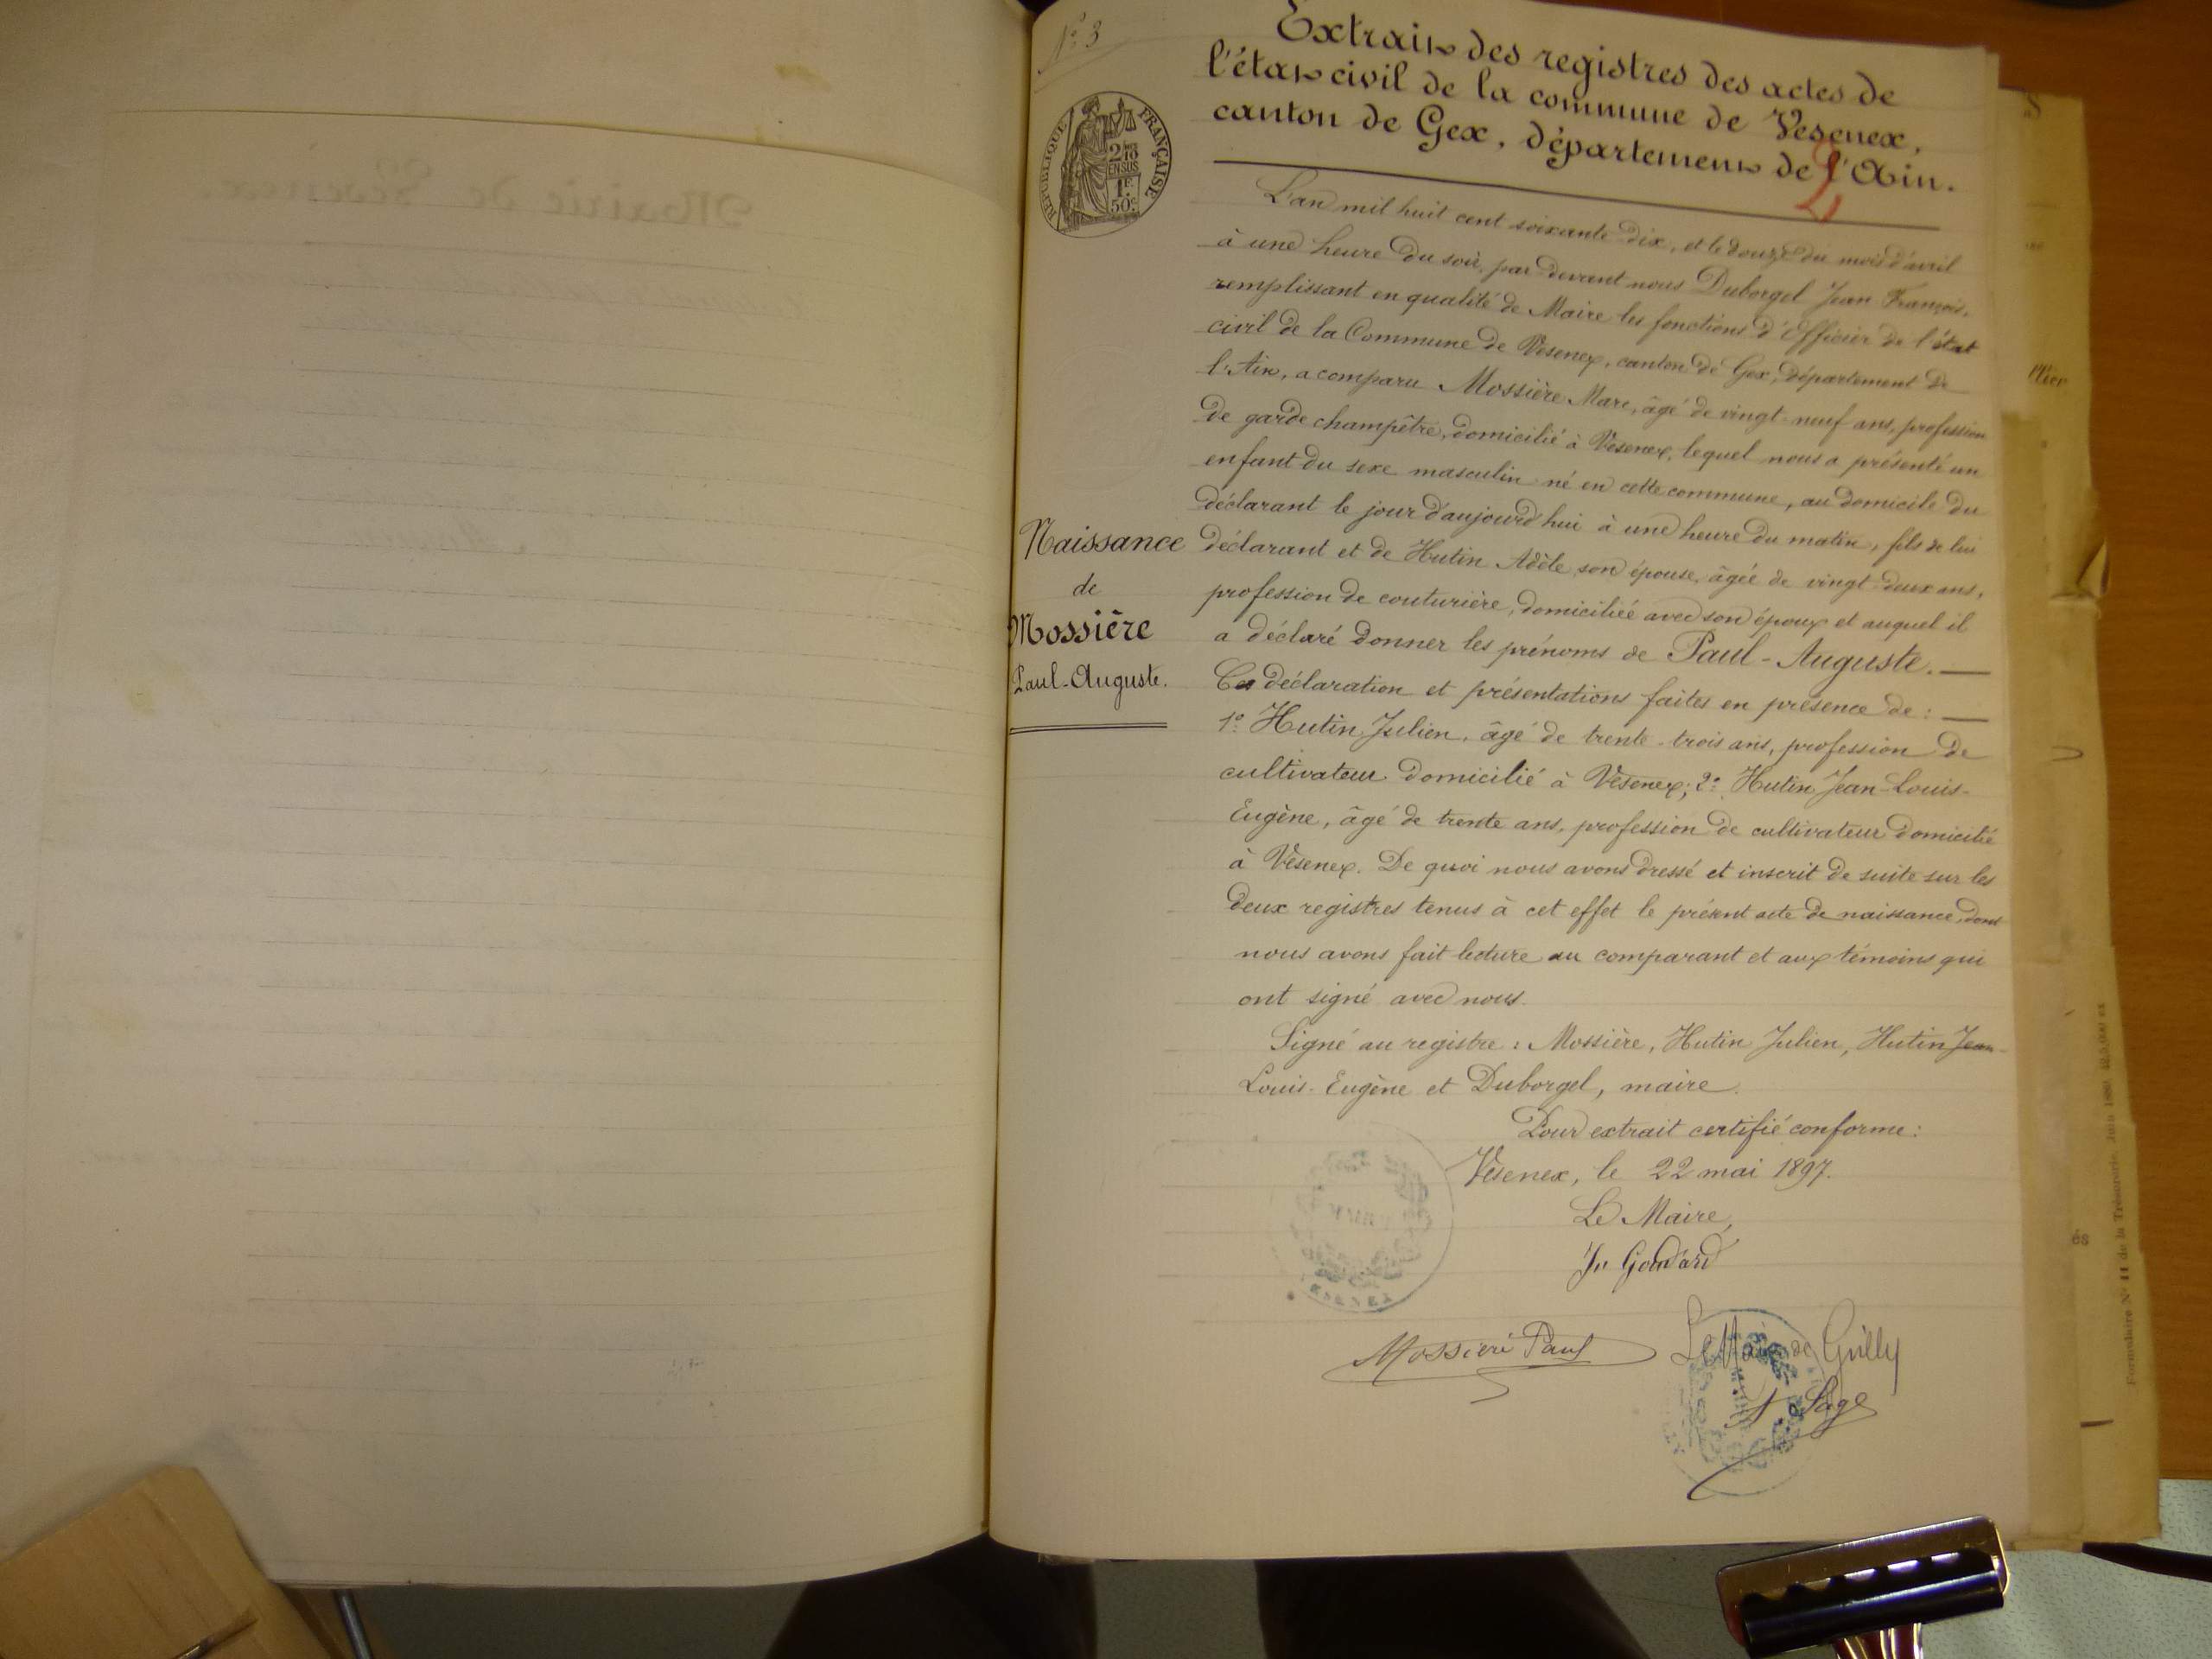 N° 3
Extrait des registres des actes de
l'état civil de la commune de Vesenex,
canton de Gex, département de l'Ain.
2
RÉPUBLIQUE FRANÇAISE
2/10
EN SUS
1 F.
50 c.
L'an mil huit cent soixante-dix, et le douze du mois d'avril
à une heure du soir, par devant nous Duborgel Jean-François,
remplissant en qualité de Maire les fonctions d'Officier de l'état
civil de la Commune de Vesenex, canton de Gex, département de
l'Ain, a comparu Mossière Marc, âgé de vingt-neuf ans, profession
de garde champêtre, domicilié à Vesenex, lequel nous a présenté un
enfant du sexe masculin né en cette commune, au domicile du
déclarant le jour d'aujourd'hui à une heure du matin, fils de lui
déclarant et de Hutin Adèle son épouse, âgée de vingt-deux ans,
profession de couturière, domiciliée avec son époux et auquel il
a déclaré donner les prénoms de Paul-Auguste. —
Ces déclaration et présentations faites en présence de : —
1° Hutin Julien, âgé de trente-trois ans, profession de
cultivateur domicilié à Vesenex; 2° Hutin Jean-Louis-
Eugène, âgé de trente ans, profession de cultivateur domicilié
à Vesenex. De quoi nous avons dressé et inscrit de suite sur les
deux registres tenus à cet effet le présent acte de naissance, dont
nous avons fait lecture au comparant et aux témoins qui
ont signé avec nous.
Signé au registre : Mossière, Hutin Julien, Hutin Jean-
Louis-Eugène et Duborgel, maire.
Pour extrait certifié conforme :
Vesenex, le 22 mai 1897.
Le Maire,
Jn Goudard
Mossière Paul
Le Maire de Grilly
Sage
Naissance
de
Mossière
Paul-Auguste.
Formulaire N° 11 de la Trésorerie. Juin
és